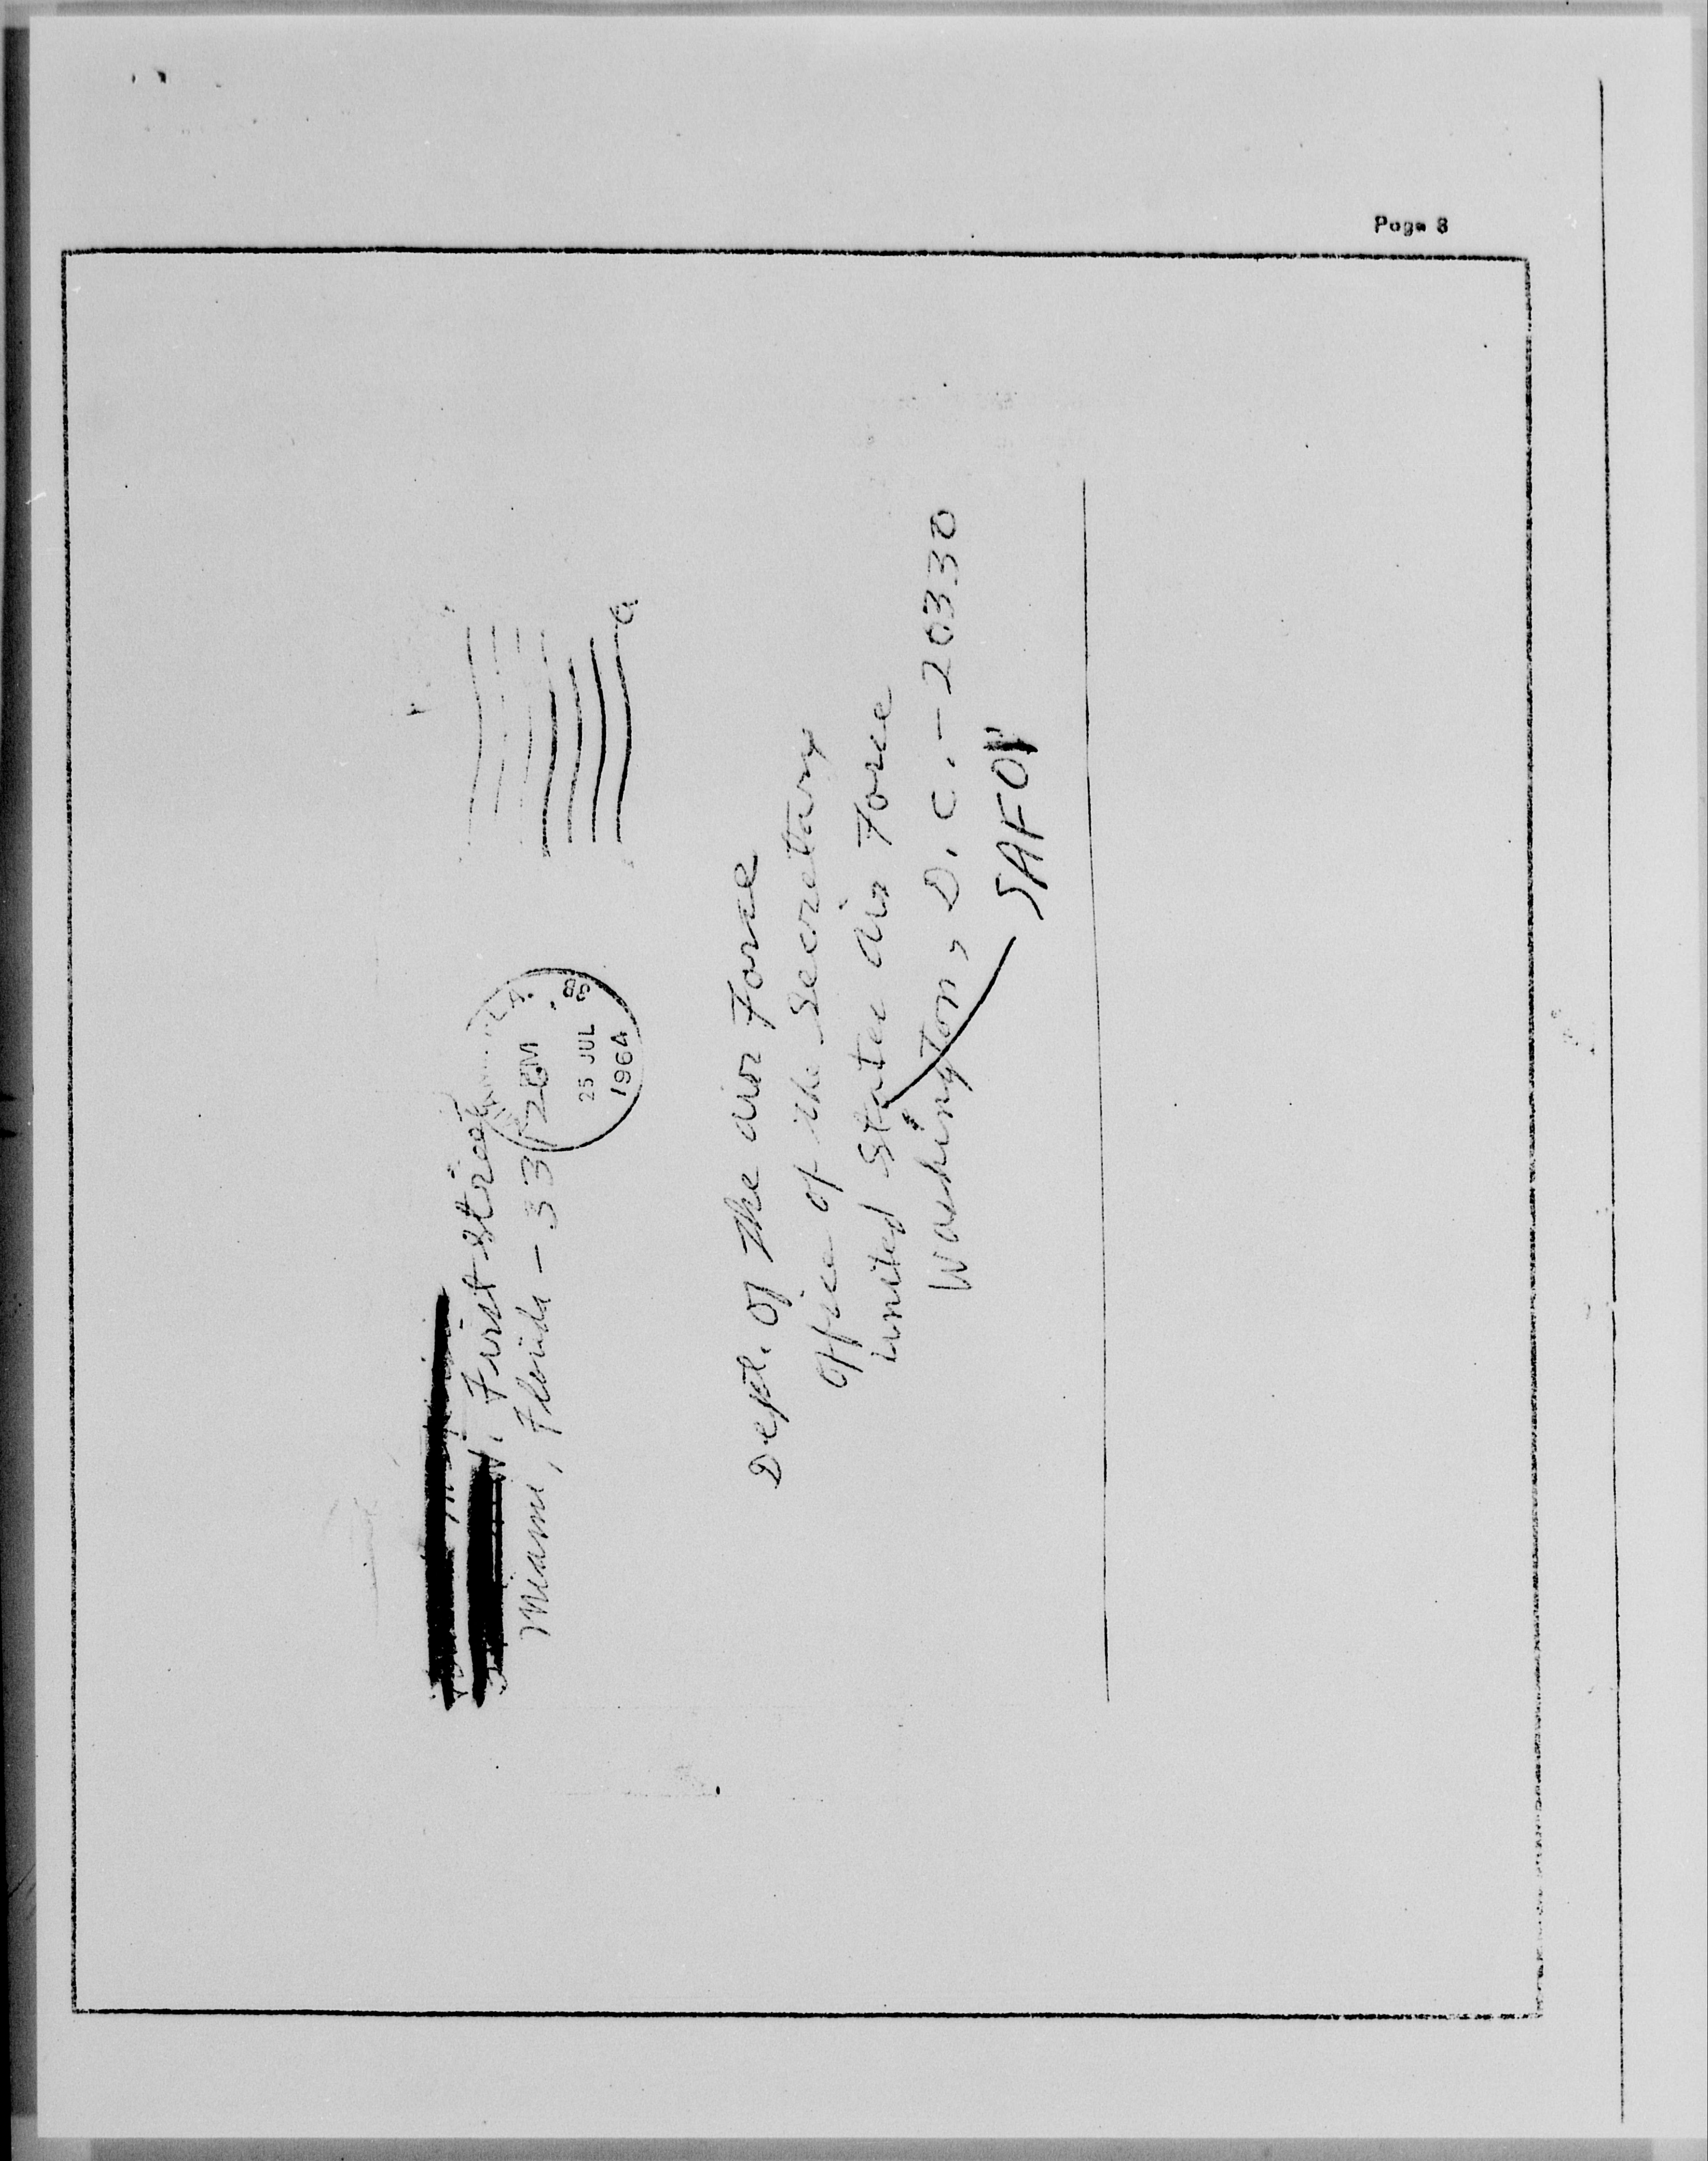 Page 8
First Street
Miami, Florida - 33
25 JUL
1964
Dept. of The air Force
Office of the Secretary
united States air Force
Washington, D.C. - 20330
SAFOI